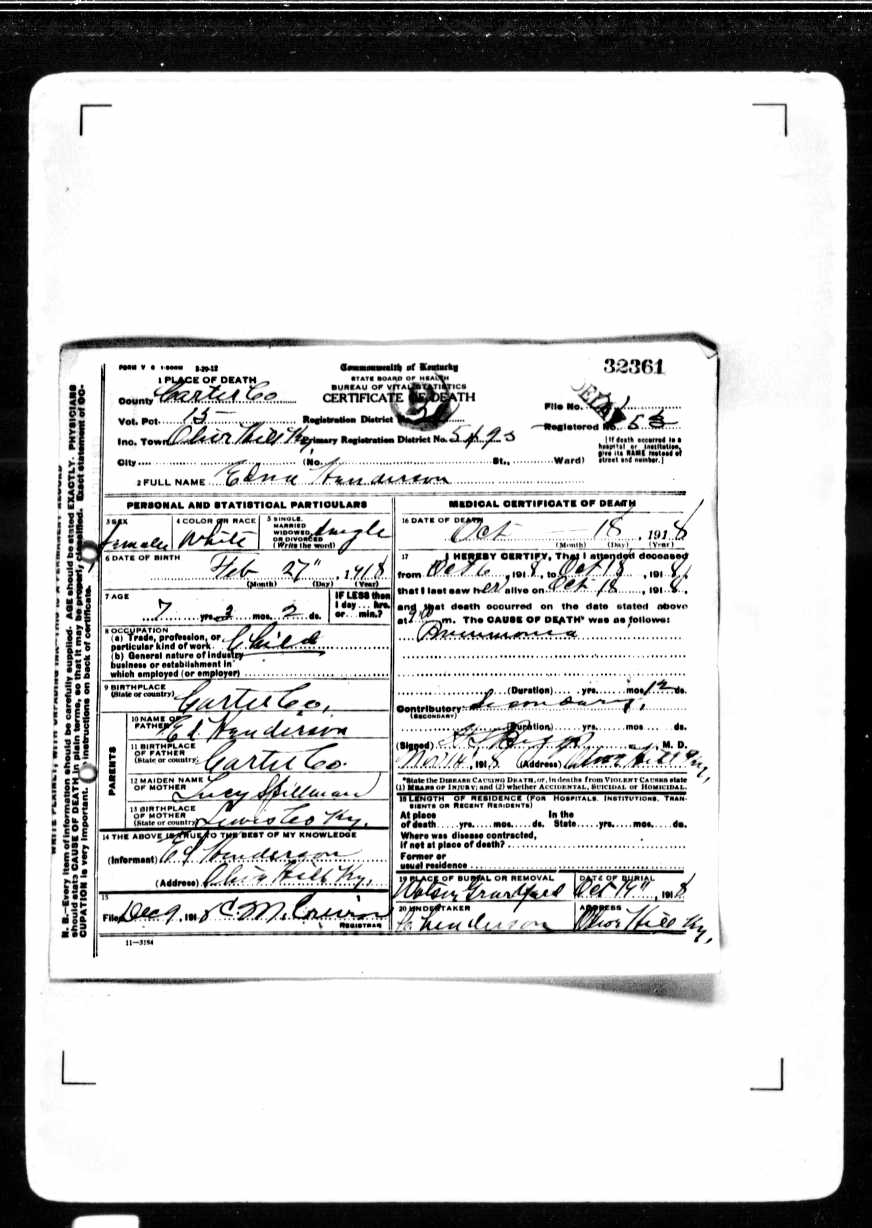 FORM V S 1-500M 3-29-12
Commonwealth of Kentucky
32361
STATE BOARD OF HEALTH
BUREAU OF VITAL STATISTICS
CERTIFICATE OF DEATH
1 PLACE OF DEATH
County Carter Co
File No.
DELAY
Vot. Pct. 15
Registration District No.
Registered No. 53
Inc. Town Olive Hill Ky,
Primary Registration District No. 5493
[If death occurred in a hospital or institution, give its NAME instead of street and number.]
City (No. St., Ward)
2 FULL NAME Edna Henderson
PERSONAL AND STATISTICAL PARTICULARS
3 SEX female
4 COLOR OR RACE White
5 SINGLE, MARRIED WIDOWED, OR DIVORCED (Write the word) single
6 DATE OF BIRTH Feb 27", 1918
(Month) (Day) (Year)
7 AGE
7 yrs. 2 mos. 2 ds.
IF LESS than 1 day... hrs. or... min.?
8 OCCUPATION
(a) Trade, profession, or particular kind of work Child
(b) General nature of industry business or establishment in which employed (or employer)
9 BIRTHPLACE
(State or country) Carter Co,
PARENTS
10 NAME OF FATHER Ed Henderson
11 BIRTHPLACE OF FATHER
(State or country) Carter Co.
12 MAIDEN NAME OF MOTHER Lucy Spillman
13 BIRTHPLACE OF MOTHER
(State or country) Lewis Co Ky.
14 THE ABOVE IS TRUE TO THE BEST OF MY KNOWLEDGE
(Informant) Ed Henderson
(Address) Olive Hill Ky,
15
Filed Dec 9, 1918 C. M.
REGISTRAR
11-3184
MEDICAL CERTIFICATE OF DEATH
16 DATE OF DEATH Oct 18, 1918
(Month) (Day) (Year)
17 I HEREBY CERTIFY, That I attended deceased
from Oct 6, 1918, to Oct 18, 1918,
that I last saw her alive on Oct 18, 1918,
and that death occurred on the date stated above
at m. The CAUSE OF DEATH* was as follows:
Pneumonia
(Duration) yrs. mos. 12 ds.
Contributory Secondary,
(SECONDARY)
(Duration) yrs. mos. ds.
(Signed) M. D.
Nov 14, 1918 (Address) Olive Hill Ky,
*State the DISEASE CAUSING DEATH, or, in deaths from VIOLENT CAUSES state
(1) MEANS OF INJURY; and (2) whether ACCIDENTAL, SUICIDAL or HOMICIDAL.
18 LENGTH OF RESIDENCE (FOR HOSPITALS, INSTITUTIONS, TRANSIENTS OR RECENT RESIDENTS)
At place of death yrs. mos. ds. In the State yrs. mos. ds.
Where was disease contracted,
if not at place of death?
Former or
usual residence
19 PLACE OF BURIAL OR REMOVAL
DATE OF BURIAL
Graveyard Oct 19", 1918
20 UNDERTAKER
ADDRESS
Henderson Olive Hill Ky,
N. B.—Every item of information should be carefully supplied. AGE should be stated EXACTLY. PHYSICIANS
should state CAUSE OF DEATH in plain terms, so that it may be properly classified. Exact statement of OC-
CUPATION is very important. See instructions on back of certificate.